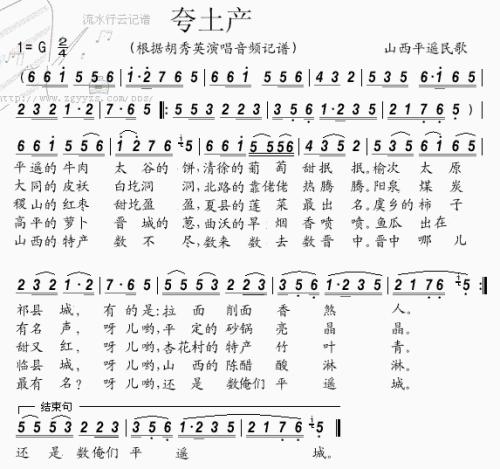 流水行云记谱
夸土产
1= G 2/4
(根据胡秀英演唱音频记谱)
山西平遥民歌
(6 6 1 5 5 6 | 1·2 7 6 5 | 6 6 1 6 5 | 4 3 2 5 3 5 6·1 6 5
2 3 2 1·2 | 7·6 5 ‖: 5 5 3 2 2 3 | 3 5 6 1·2 3 5 | 2 1 7 6 5 )
http://www.zgyyzs.com/bbs/
6 6 1 5 5 6 1 2 7 6 5 6 6 1 6 5 5 5 6 4 3 2 5 3 5 6 1 6 5
平遥的牛肉 太谷的 饼,清徐的葡 萄 甜抿 抿。榆次 太 原
大同的皮袄 白圪洞 洞,北路的靠佬佬 热腾 腾。阳泉 煤 炭
稷山的红枣 甜圪盈 盈,夏县的莲 菜 最出 名。虞乡的 柿 子
高平的萝卜 晋城的 葱,曲沃的旱 烟 香喷 喷。鱼瓜 出在
山西的特产 数 不 尽,数来 数 去 数晋 中。晋中 哪 儿
2 3 2 1·2 | 7·6 5 | 5 5 5 3 2 2 3 | 3 5 6 1·2 3 5 | 2 1 7 6 5 :‖
祁县 城, 有 的 是:拉 面 削面 香 煞 人。
有名 声, 呀 儿 哟,平 定的 砂锅 亮 晶 晶。
甜又 红, 呀 儿 哟,杏花村的 特产 竹 叶 青。
临县 城, 呀 儿 哟,山 西的 陈醋 酸 淋 淋。
最有 名? 呀 儿 哟,还是 数俺们 平 遥 城。
结束句
5 5 5 3 2 2 3 | 3 5 6 | 1·2 3 5 | 2 1 7 6 | 5 ‖
还 是 数俺们 平 遥 城。